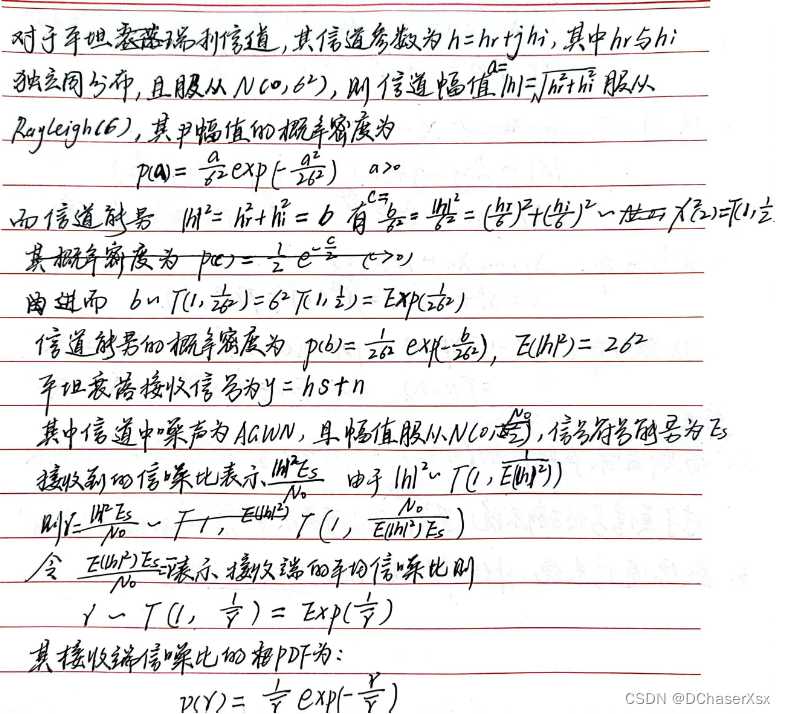 对于平坦衰落瑞利信道，其信道参数为h=hr+jhi，其中hr与hi
独立同分布，且服从N(0,6²)，则信道幅值a=|h|=√(hr²+hi²) 服从
Rayleigh(6)，其中幅值的概率密度为
p(a)= a/6² exp(-a²/26²) a>0
而信道能号 |h|²=hr²+hi²=b 有 c=b/6²=|h|²/6²=(hr/6)²+(hi/6)²~ χ²(2)=T(1,1/2
其概率密度为 p(c)=1/2 e^(-c/2) (c>0)
进而 b~T(1,1/26²)=6²T(1,1/2)=Exp(1/26²)
信道能号的概率密度为 p(b)=1/26² exp(-b/26²)，E(|h|²)=26²
平坦衰落接收信号为y=hs+n
其中信道中噪声为AGWN，且幅值服从N(0,N0/2)，信号符号能号为Es
接收到的信噪比表示|h|²Es/N0 由于|h|²~T(1,1/E(|h|²))
则γ=|h|²Es/N0 ~ T(1, N0/E(|h|²)Es)
令 E(|h|²)Es/N0=γ̄表示接收端的平均信噪比则
γ~T(1,1/γ̄)=Exp(1/γ̄)
其接收端信噪比的PDF为：
p(γ)=1/γ̄ exp(-γ/γ̄)
CSDN @DChaserXsx